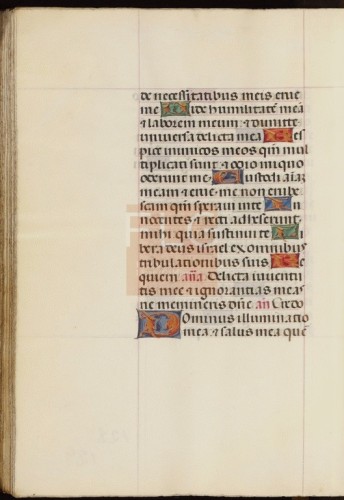 de necessitatibus meis erue
me Uide humilitatē meā
& laborem meum & dimitte
vniuersa delicta mea Res
pice inimicos meos qm̄ mul
tiplicati sunt & odio iniquo
oderunt me Custodi aīaȝ
meam & erue me non erube
scam qm̄ speraui in te In
nocentes & recti adheserunt
mihi quia sustinui te Li
bera deus israel ex omnibus
tribulationibus suis Re
quiem an̄a Delicta iuuentu
tis mee & ignorantias meas
ne memineris dn̄e an̄ Credo
Dominus illuminatio
mea & salus mea quē